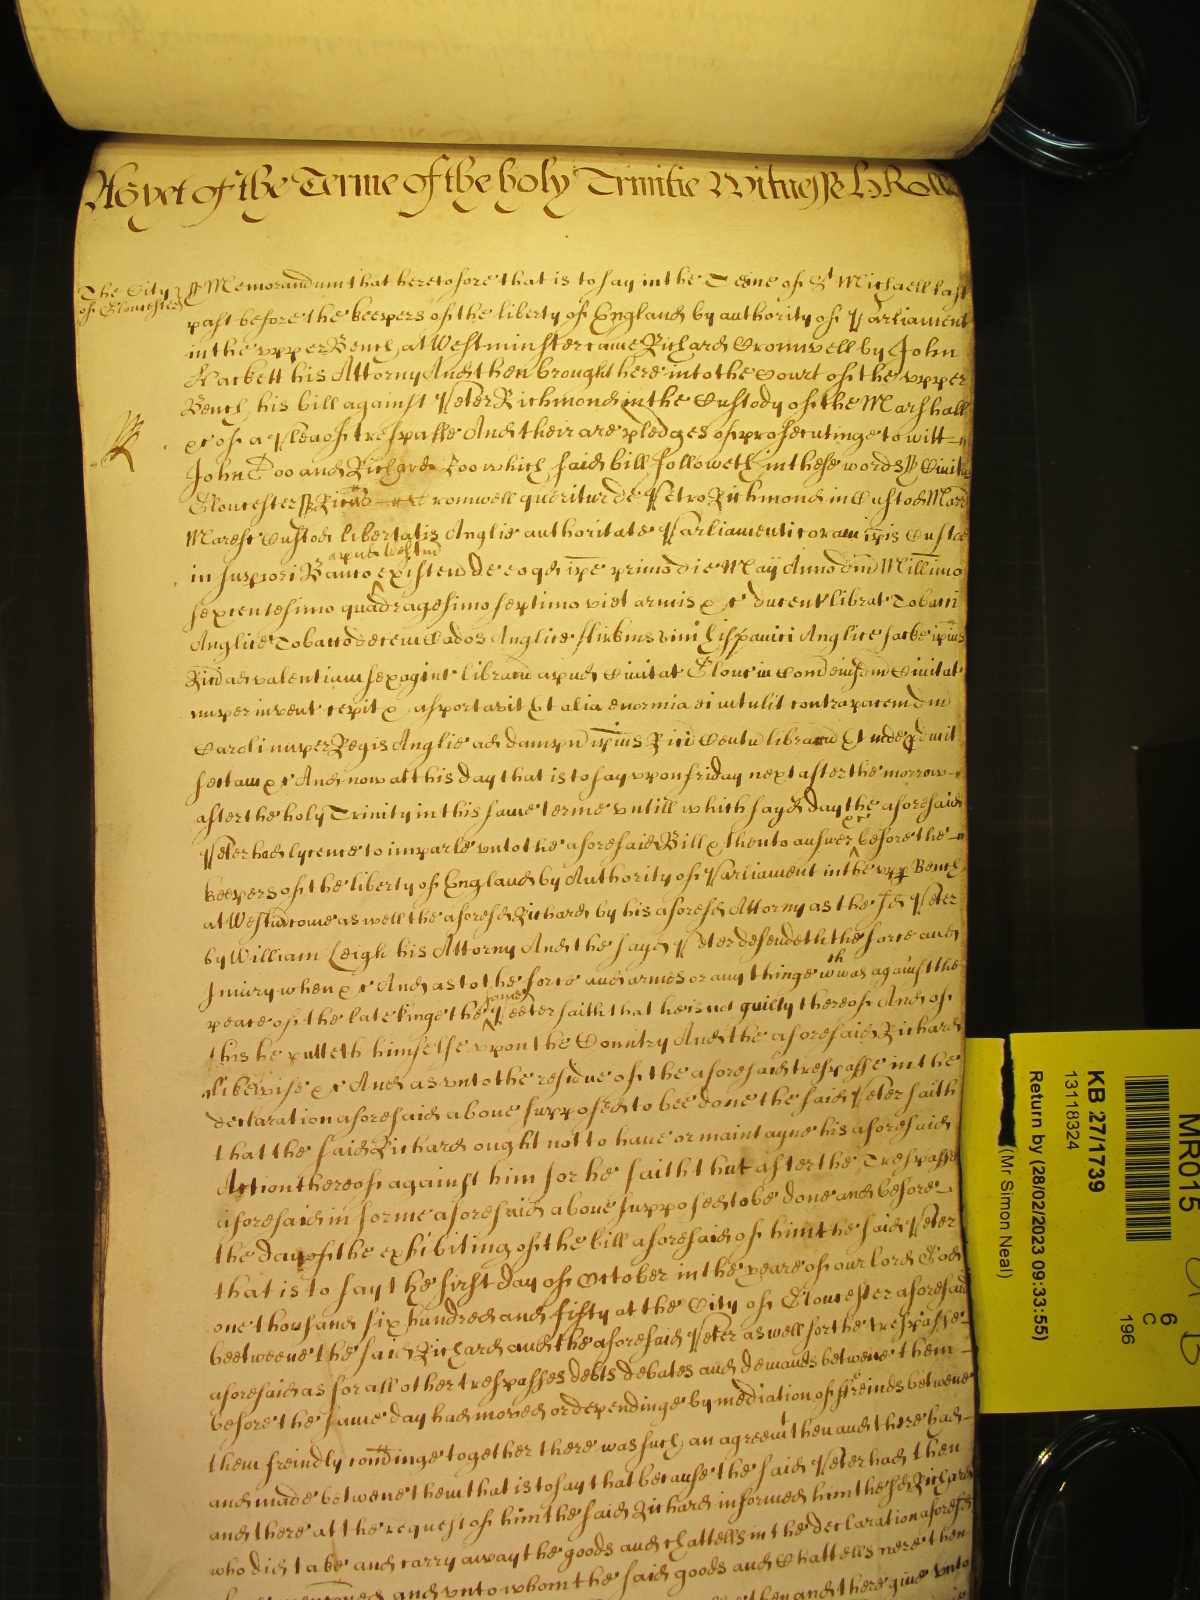 As yet of the Terme of the holy Trinitie Witnesse H Rolle
The City
of Gloucester
Memorandum that heretofore that is to say in the Terme of St Michaell last
past before the keepers of the liberty of England by authority of Parliament
in the upper Bench at Westminster came Richard Cromwell by John
Hackett his Attorny And then brought here into the Court of the upper
Bench his bill against Peter Richmond in the Custody of the Marshall
&c of a plea of trespasse And their are pledges of prosecutinge to witt
John Doo and Richard Roo which said bill followeth in these words Civitas
Gloucester Ricus Cromwell queritur de Petro Richmond in Custod Marr
Maresc Custod libertatis Anglie authoritate Parliamenti coram ipis Custod
apud Westm
in superiori Banco existen de eo qd ipe primo die Maij Anno dni Millimo
sexcentesimo quadragesimo septimo vi et armis &c ducent librat Tobacci
Anglice Tobacco decem Cados Anglice firkins vini hispanici Anglice sacke ipius
Rici ad valentiam sexagint librarum apud Civitat Glouc in Com eiusdem Civitat
nuper invent cepit & asportavit Et alia enormia ei intulit contra pacem dni
Caroli nuper Regis Anglie ad dampnu ipius Rici Centu librarum Et inde producit
sectam &c And now att this day that is to say uppon friday next after the morrow
after the holy Trinity in this same terme untill which sayd day the aforesaid
&c
Peter had lycence to imparle unto the aforesaid Bill & then to answer before the
keepers of the liberty of England by Authority of Parliament in the upp Bench
at Westm come as well the aforesd Richard by his aforesd Attorny as the sd Peter
by William Leigh his Attorny And the sayd Peter defendeth the force and
Injury when &c And as to the force and armes or any thinge wch was against the
same
peace of the late kinge the Peeter saith that he is not guilty thereof And of
this he putteth himselfe uppon the Country And the aforesaid Richard
likewise &c And as unto the residue of the aforesaid trespasse in the
declaration aforesaid above supposed to bee done the said Peter saith
that the said Richard ought not to have or maintayne his aforesaid
Action thereof against him for he saith that after the Trespasse
aforesaid in forme aforesaid above supposed to be done and before
the day of the exhibiting of the bill aforesaid of him the said Peter
that is to say the first day of October in the yeare of our lord God
one thousand six hundred and fifty at the City of Gloucester aforesaid
beetweene the said Richard and the aforesaid Peter as well for the trespasse
aforesaid as for all other trespasses debts debates and demands betwene them
before the same day had moved or dependinge by mediation of ffreinds betwene
them freindly cominge together there was such an agreemt then and there had
and made betwene them that is to say that because the said Peter had then
and there at the request of him the said Richard informed him the sd Richard
who did take and carry away the goods and chattells in the declaration aforesd
and unto whom the said goods and Chattells were then
then and there give unto
MR015
KB 27/1739
13118324
Return by (28/02/2023 09:33:55)
(Mr Simon Neal)
6
C
196